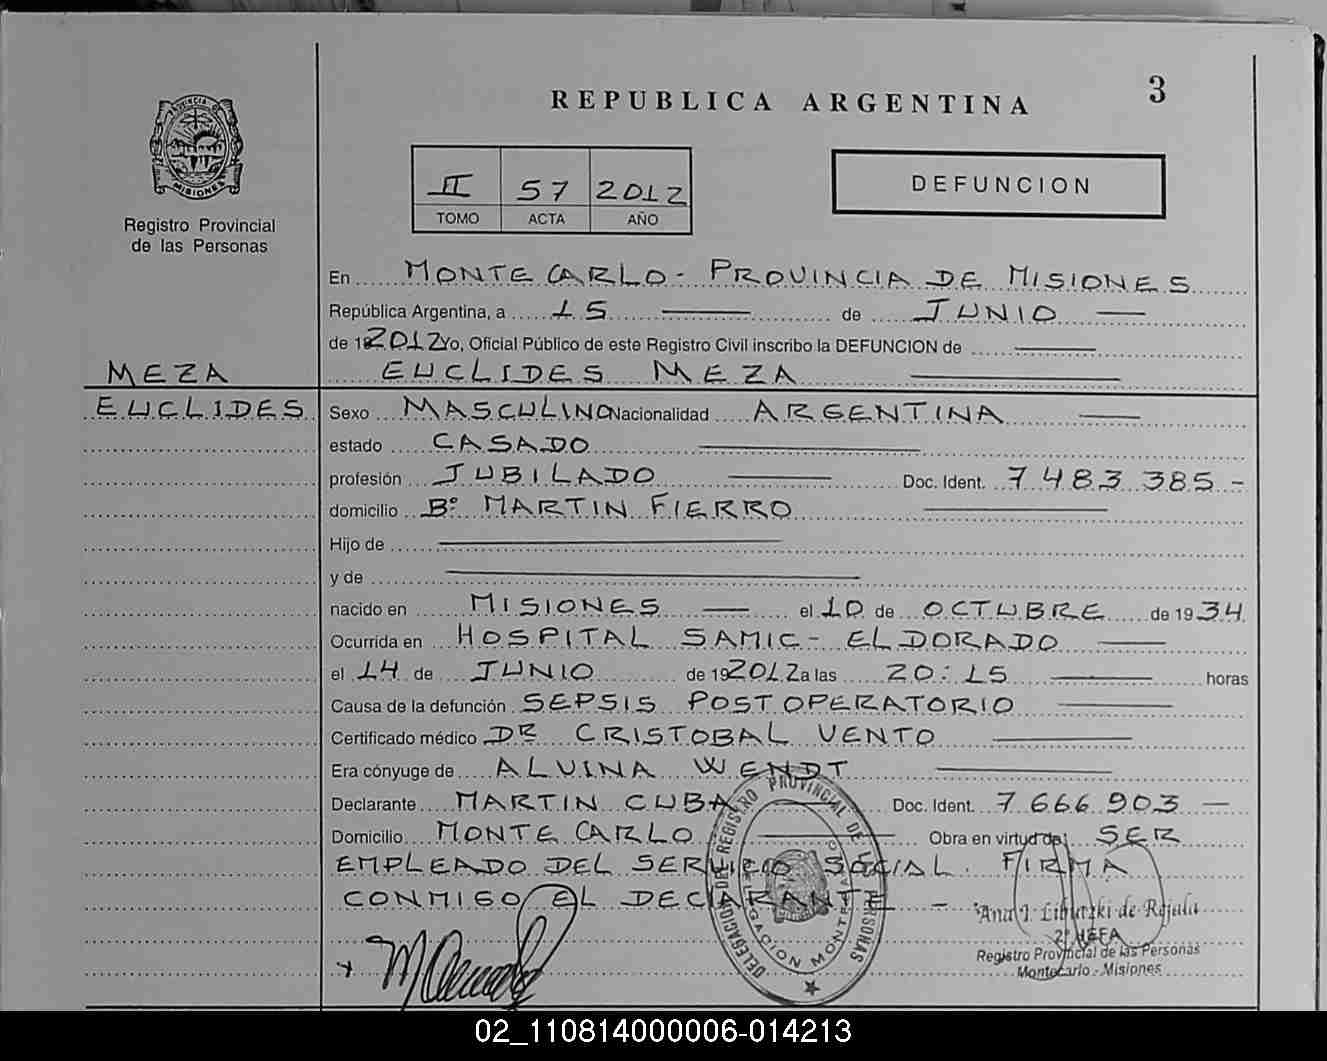 REPUBLICA ARGENTINA
3
PROVINCIA DE
MISIONES
Registro Provincial
de las Personas
II 57 2012
TOMO ACTA AÑO
DEFUNCION
En MONTECARLO - PROVINCIA DE MISIONES
República Argentina, a 15 de JUNIO
de 2012 Yo, Oficial Público de este Registro Civil inscribo la DEFUNCION de
MEZA
EUCLIDES MEZA
EUCLIDES
Sexo MASCULINO Nacionalidad ARGENTINA
estado CASADO
profesión JUBILADO Doc. Ident. 7 483 385 -
domicilio Bº MARTIN FIERRO
Hijo de
y de
nacido en MISIONES el 10 de OCTUBRE de 1934
Ocurrida en HOSPITAL SAMIC - ELDORADO
el 14 de JUNIO de 192012 a las 20:15 horas
Causa de la defunción SEPSIS POSTOPERATORIO
Certificado médico DR CRISTOBAL VENTO
Era cónyuge de ALVINA WENDT
Declarante MARTIN CUBA Doc. Ident. 7 666 903 -
Domicilio MONTECARLO Obra en virtud de SER
EMPLEADO DEL SERVICIO SOCIAL. FIRMA
CONMIGO EL DECLARANTE -
DELEGACION DEL REGISTRO PROVINCIAL DE LAS PERSONAS
Ana I. de Rojala
2º JEFA
Registro Provincial de las Personas
Montecarlo - Misiones
02_110814000006-014213